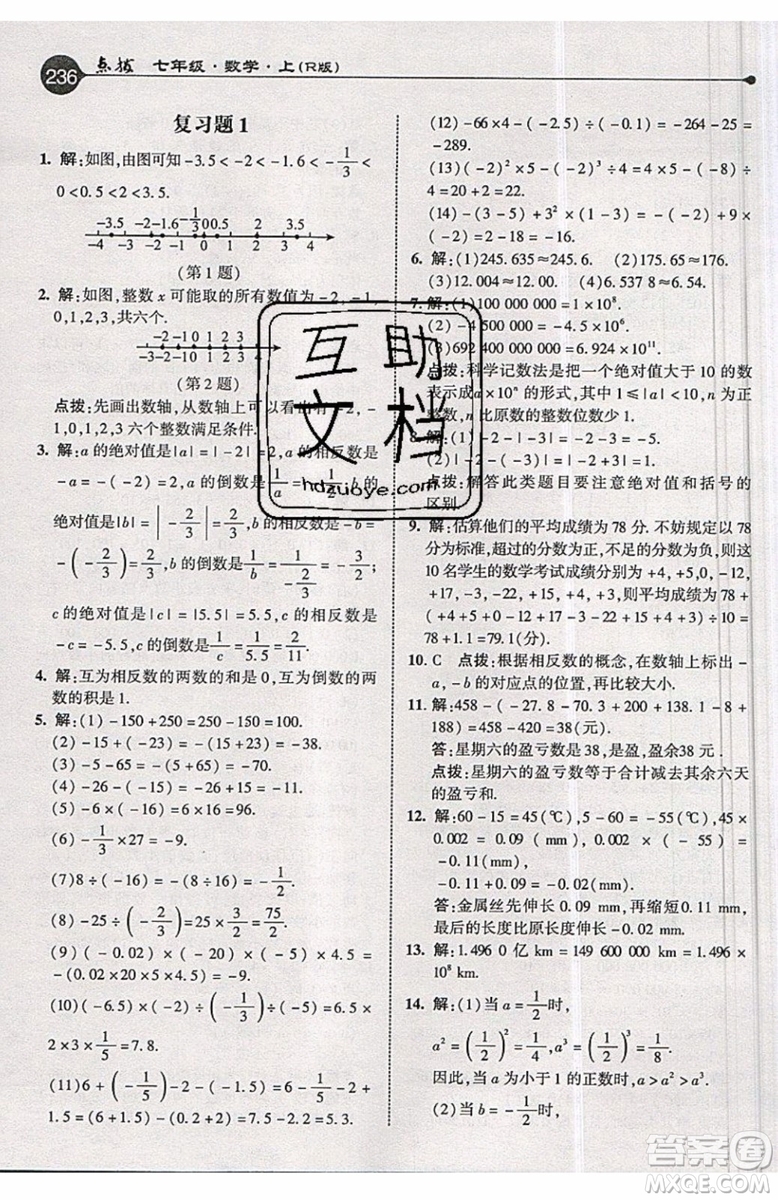 236 点拨 七年级·数学·上(R版)
复习题1
1. 解:如图,由图可知 -3.5<-2<-1.6<-1/3<
<0<0.5<2<3.5.
-3.5 -2-1.6 -1/3 0 0.5 2 3.5
-4 -3 -2 -1 0 1 2 3 4
(第1题)
2. 解:如图,整数 x 可能取的所有数值为 -2,-1
0,1,2,3,共六个.
-2-10 1 2 3
-3-2-10 1 2 3 4
(第2题)
点拨:先画出数轴,从数轴上可以看出有 -2,-
0,1,2,3 六个整数满足条件.
3. 解:a 的绝对值是|a|=|-2|=2,a 的相反数是
-a=-(-2)=2,a 的倒数是1/a=1/-2=-1/2;b 的
绝对值是|b|=|-2/3|=2/3,b 的相反数是 -b=
-(-2/3)=2/3,b 的倒数是1/b=1/(-2/3)=-3/2;
c 的绝对值是|c|=|5.5|=5.5,c 的相反数是
-c=-5.5,c 的倒数是1/c=1/5.5=2/11.
4. 解:互为相反数的两数的和是 0;互为倒数的两
数的积是 1.
5. 解:(1)-150+250=250-150=100.
(2)-15+(-23)=-(15+23)=-38.
(3)-5-65=-(5+65)=-70.
(4)-26-(-15)=-26+15=-11.
(5)-6×(-16)=6×16=96.
(6)-1/3×27=-9.
(7)8÷(-16)=-(8÷16)=-1/2.
(8)-25÷(-2/3)=25×3/2=75/2.
(9)(-0.02)×(-20)×(-5)×4.5=
-(0.02×20×5×4.5)=-9.
(10)(-6.5)×(-2)÷(-1/3)÷(-5)=6.5×
2×3×1/5=7.8.
(11)6+(-1/5)-2-(-1.5)=6-1/5-2+
1.5=(6+1.5)-(0.2+2)=7.5-2.2=5.3.
(12)-66×4-(-2.5)÷(-0.1)=-264-25=
-289.
(13)(-2)²×5-(-2)³÷4=4×5-(-8)÷
4=20+2=22.
(14)-(3-5)+3²×(1-3)=-(-2)+9×
(-2)=2-18=-16.
6. 解:(1)245.635≈245.6. (2)175.65≈176.
(3)12.004≈12.00. (4)6.5378≈6.54.
7. 解:(1)100 000 000=1×10⁸.
(2)-4 500 000=-4.5×10⁶.
(3)692 400 000 000=6.924×10¹¹.
点拨:科学记数法是把一个绝对值大于 10 的数
表示成a×10ⁿ 的形式,其中 1≤|a|<10,n 为正
整数,n 比原数的整数位数少 1.
8. 解:(1)-2-|-3|=-2-3=-5.
(2)|-2-(-3)|=|-2+3|=1.
点拨:解答此类题目要注意绝对值和括号的
区别.
9. 解:估算他们的平均成绩为 78 分. 不妨规定以78
分为标准,超过的分数为正,不足的分数为负,则这
10 名学生的数学考试成绩分别为 +4,+5,0,-12,
+17,-3,-23,+15,+8,0,平均成绩为 78+
(+4+5+0-12+17-3-23+15+8+0)÷10=
78+1.1=79.1(分).
10. C 点拨:根据相反数的概念,在数轴上标出 -
a,-b 的对应点的位置,再比较大小.
11. 解:458-(-27.8-70.3+200+138.1-8+
188)=458-420=38(元).
答:星期六的盈亏数是38,是盈,盈余38元.
点拨:星期六的盈亏数等于合计减去其余六天
的盈亏和.
12. 解:60-15=45(℃),5-60=-55(℃),45×
0.002=0.09(mm),0.002×(-55)=
-0.11(mm),
-0.11+0.09=-0.02(mm).
答:金属丝先伸长0.09 mm,再缩短0.11 mm,
最后的长度比原长度伸长 -0.02 mm.
13. 解:1.496 0 亿 km=149 600 000 km=1.496×
10⁸ km.
14. 解:(1)当 a=1/2时,
a²=(1/2)²=1/4,a³=(1/2)³=1/8.
因此,当 a 为小于 1 的正数时,a>a²>a³.
(2)当 b=-1/2时,
互助
文档
hdzuoye.com
答案圈